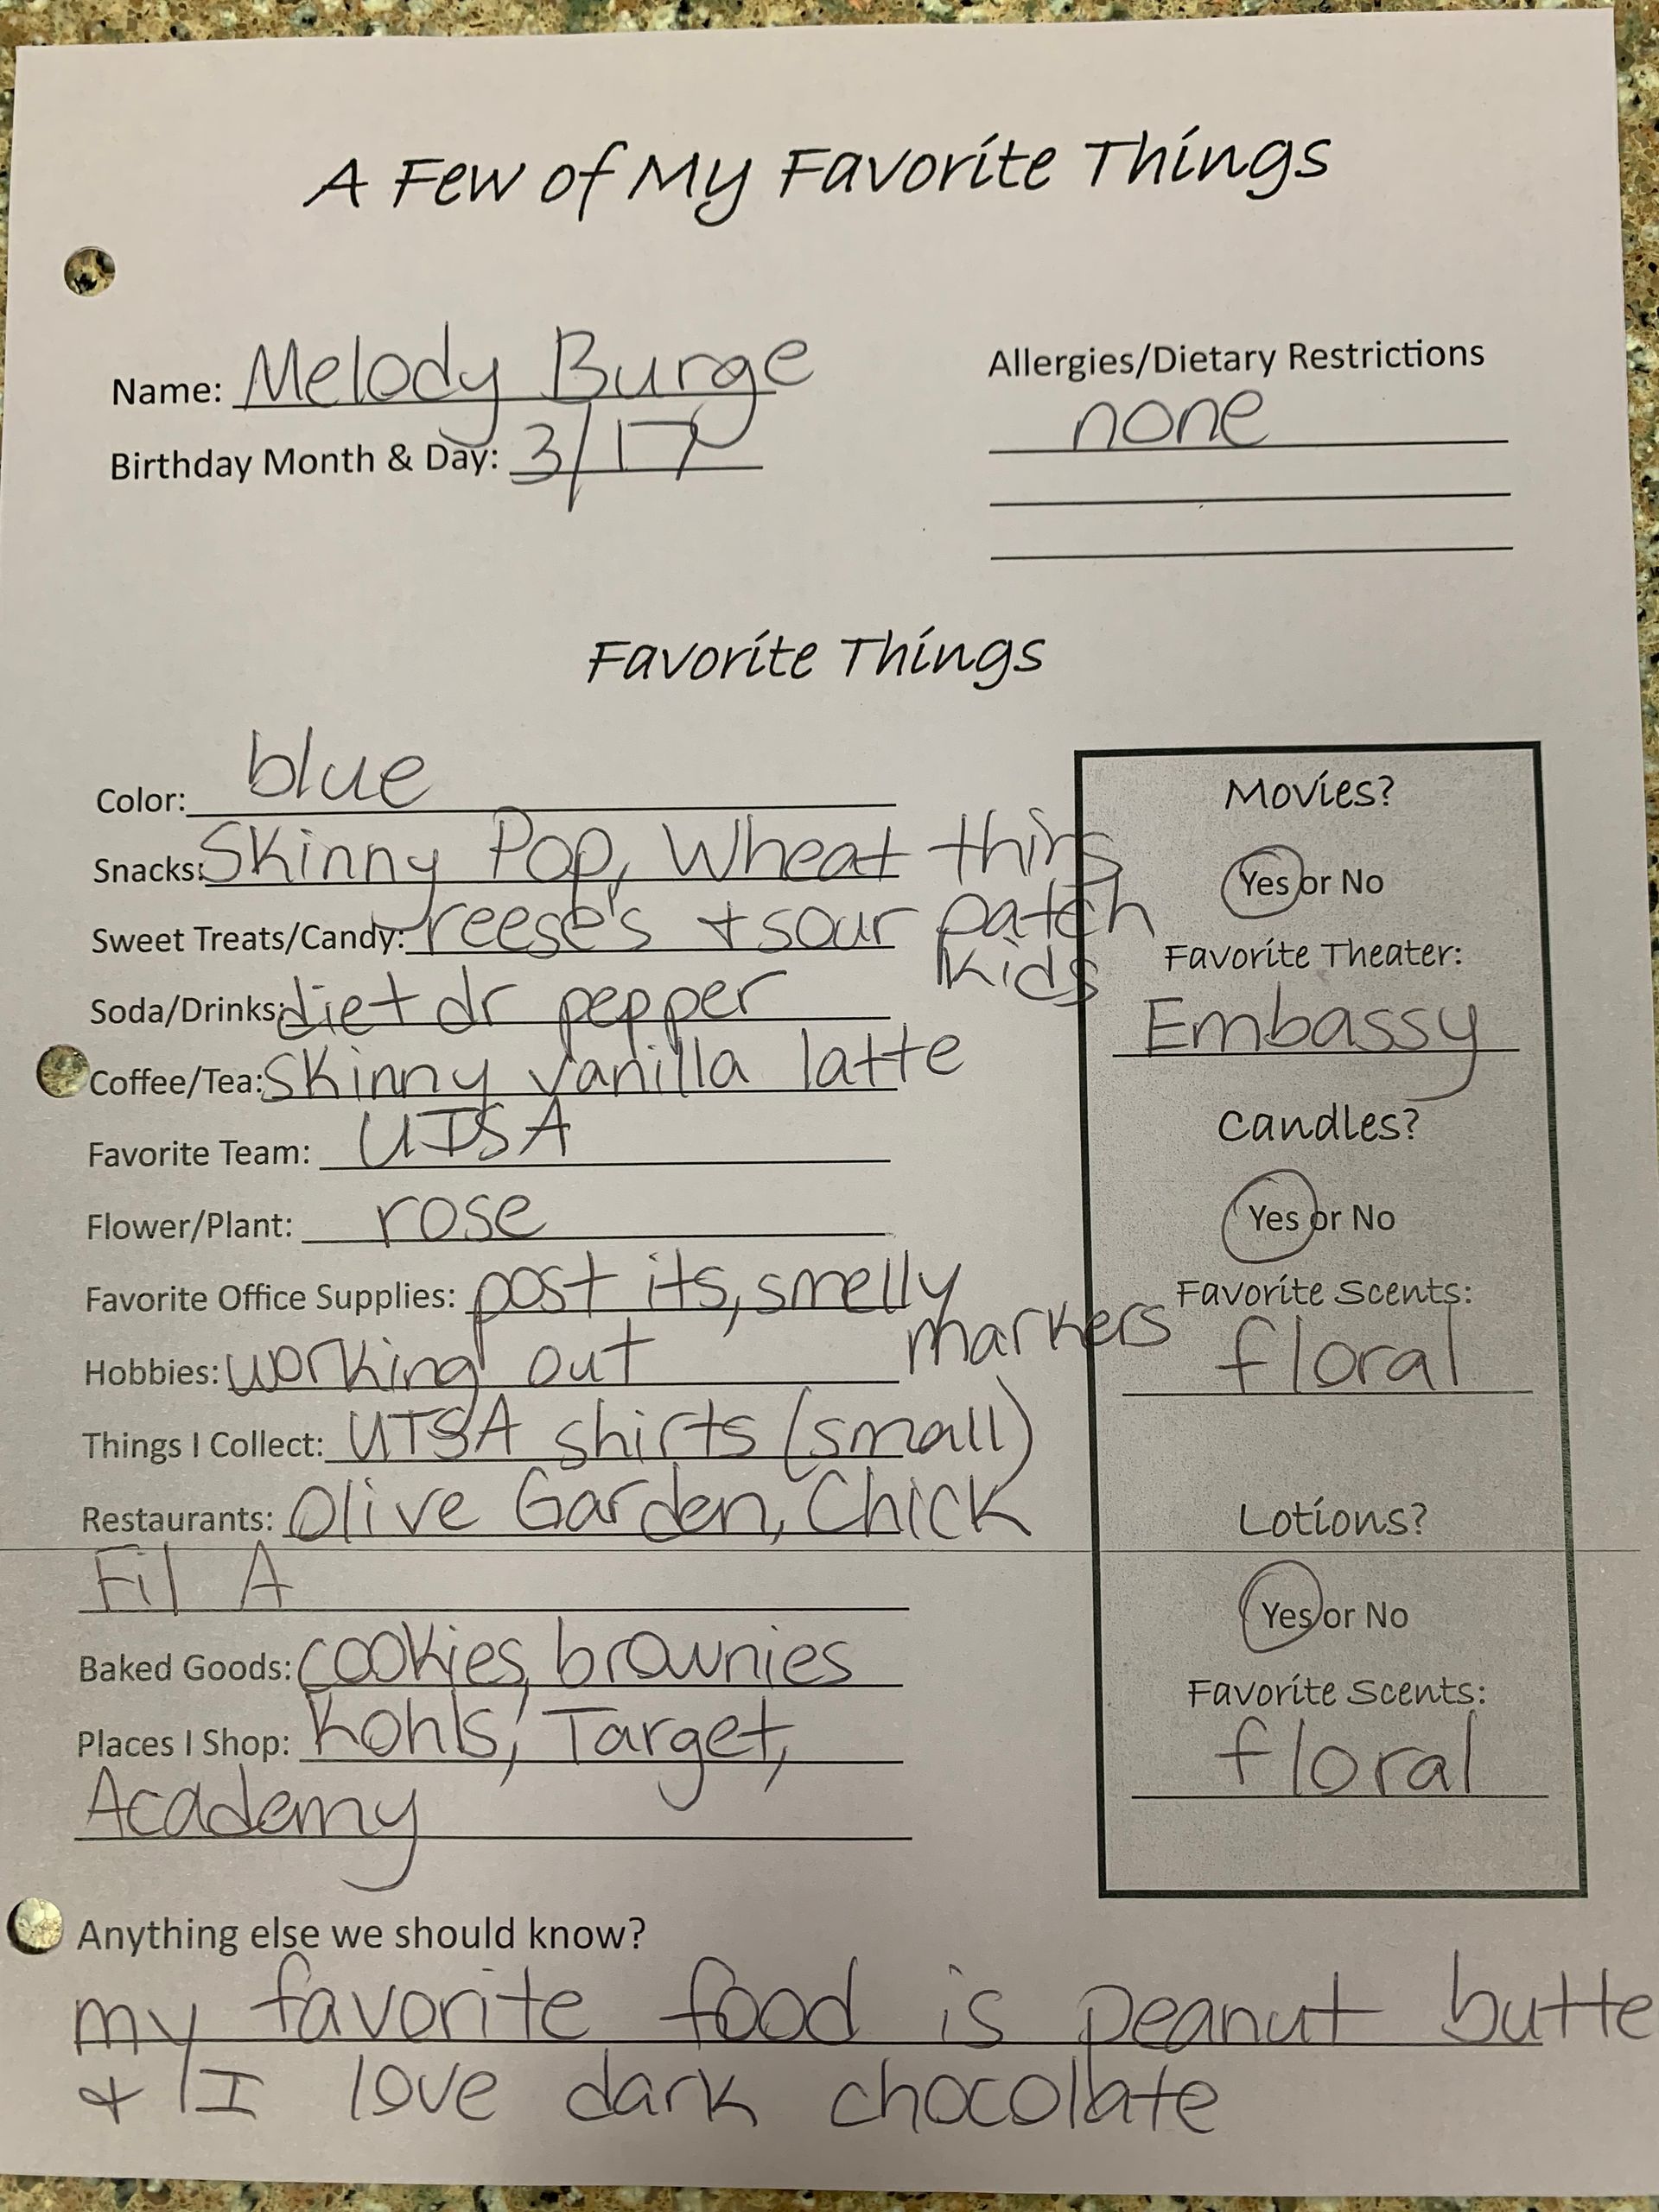 A Few of My Favorite Things
Name: Melody Burge
Birthday Month & Day: 3/17
Allergies/Dietary Restrictions
none
Favorite Things
Color: blue
Snacks: Skinny Pop, Wheat thins
Sweet Treats/Candy: reese's + sour patch
kids
Soda/Drinks: diet dr pepper
Coffee/Tea: skinny vanilla latte
Favorite Team: UTSA
Flower/Plant: rose
Favorite Office Supplies: post its, smelly
markers
Hobbies: working out
Things I Collect: UTSA shirts (small)
Restaurants: Olive Garden, Chick
Fil A
Baked Goods: cookies, brownies
Places I Shop: Kohls, Target,
Academy
Movies?
Yes or No
Favorite Theater:
Embassy
Candles?
Yes or No
Favorite Scents:
floral
Lotions?
Yes or No
Favorite Scents:
floral
Anything else we should know?
my favorite food is peanut butte
+ I love dark chocolate